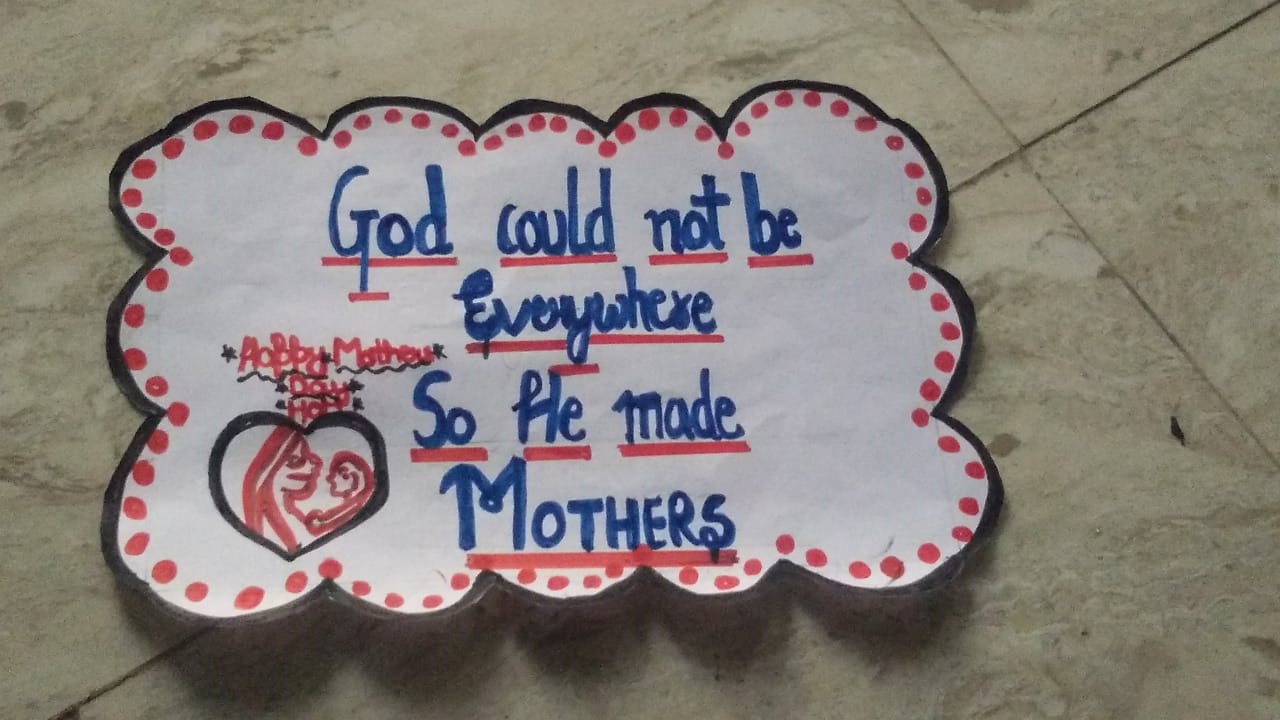 God could not be
Everywhere
*Happy*Mothers*
*Day*
So He made
MOTHERS